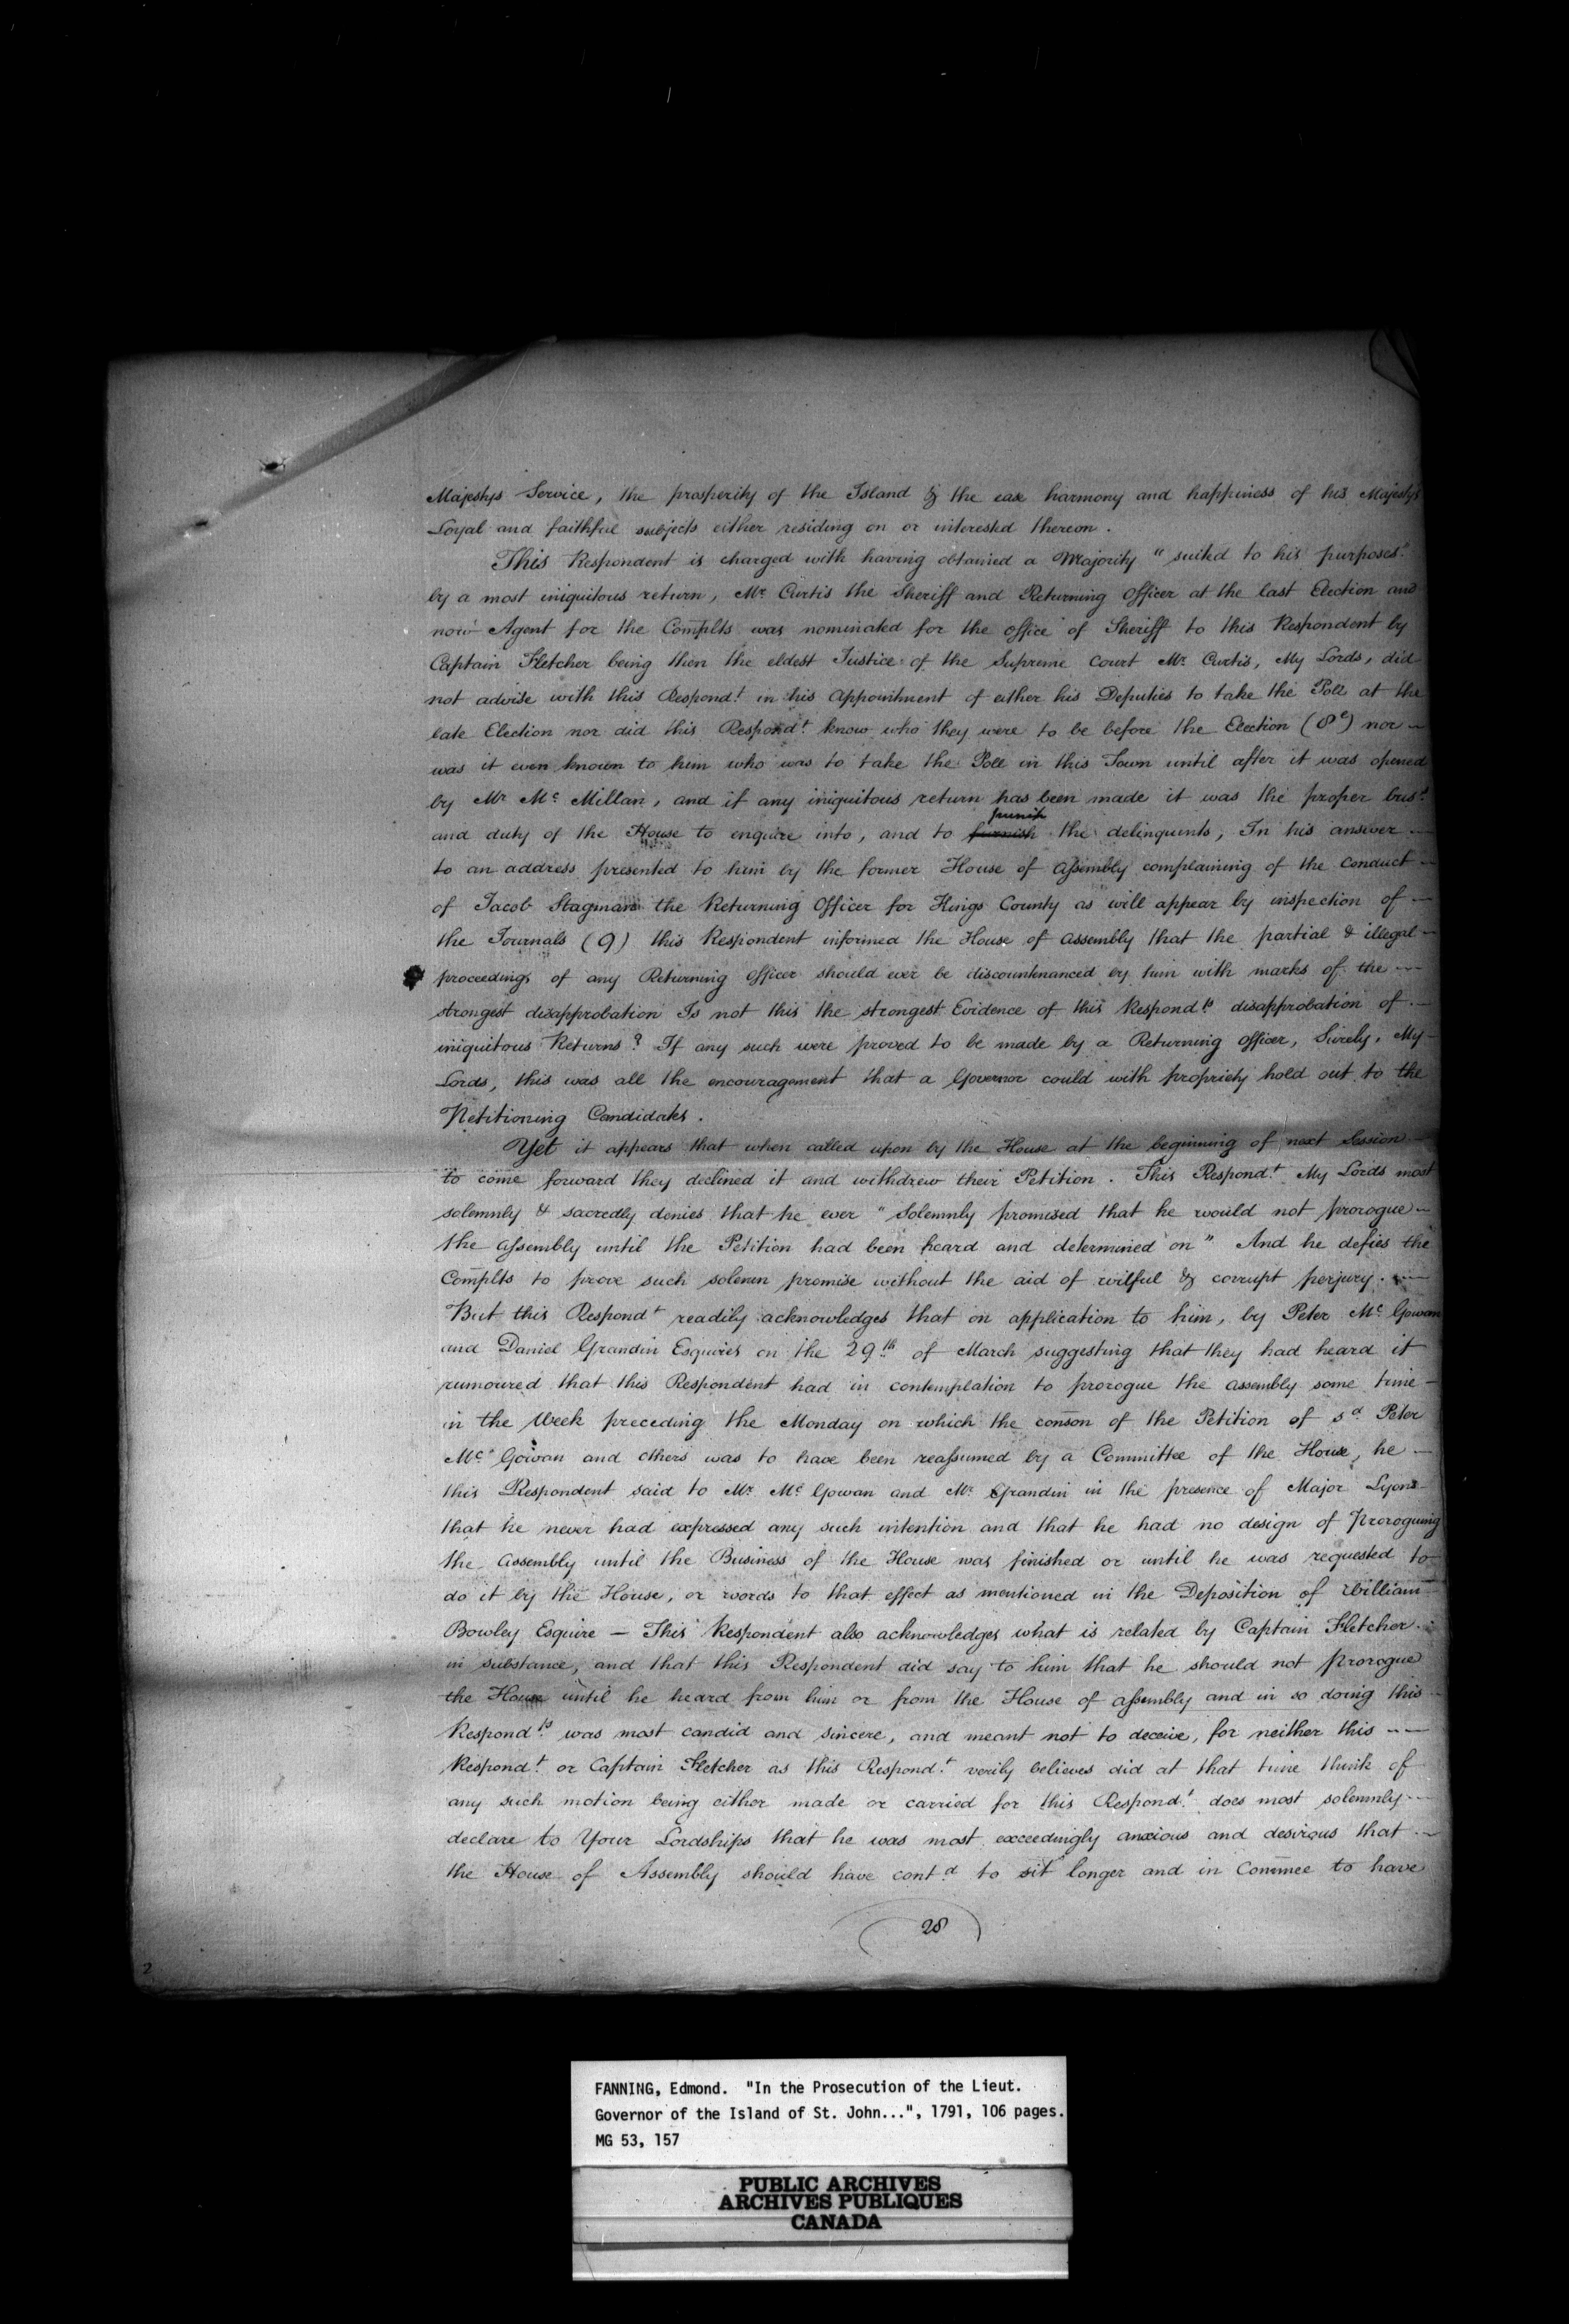 Majestys Service, the prosperity of the Island & the ease harmony and happiness of his Majestys
Loyal and faithful subjects either residing on or interested thereon.
This Respondent is charged with having obtained a Majority "suited to his purposes"
by a most iniquitous return, Mr. Curtis the Sheriff and Returning Officer at the last Election and
now Agent for the Complts was nominated for the office of Sheriff to this Respondent by
Captain Fletcher being then the eldest Justice of the Supreme Court Mr. Curtis, My Lords, did
not advise with this Respond.t in his Appointment of either his Deputies to take the Poll at the
late Election nor did this Respond.t know who they were to be before the Election (8e) nor
was it even known to him who was to take the Poll in this Town until after it was opened
by Mr Mc Millan, and if any iniquitous return has been made it was the proper bus.s
and duty of the House to enquire into, and to furnish punish the delinquents, In his answer
to an address presented to him by the former House of Assembly complaining of the Conduct
of Jacob Stagman the Returning Officer for Kings County as will appear by inspection of
the Journals (9) this Respondent informed the House of Assembly that the partial & illegal
proceedings of any Returning Officer should ever be discountenanced by him with marks of the
strongest disapprobation Is not this the strongest Evidence of this Respond.ts disapprobation of
iniquitous Returns? If any such were proved to be made by a Returning Officer, Surely, My
Lords, this was all the encouragement that a Governor could with propriety hold out to the
Petitioning Candidates.
Yet it appears that when called upon by the House at the beginning of next Session
to come forward they declined it and withdrew their Petition. This Respond.t My Lords most
solemnly & sacredly denies that he ever "Solemnly promised that he would not prorogue
the Assembly until the Petition had been heard and determined on" And he defies the
Complts to prove such solemn promise without the aid of wilful & corrupt perjury.
But this Respond.t readily acknowledges that on application to him, by Peter Mc Gowan
and Daniel Grandin Esquires on the 29th of March suggesting that they had heard it
rumoured that this Respondent had in contemplation to prorogue the Assembly some time
in the Week preceding the Monday on which the conson of the Petition of sd Peter
Mc Gowan and others was to have been reassumed by a Committee of the House, he
this Respondent said to Mr. Mc Gowan and Mr. Grandin in the presence of Major Lyons
that he never had expressed any such intention and that he had no design of Proroguing
the Assembly until the Business of the House was finished or until he was requested to
do it by the House, or words to that effect as mentioned in the Deposition of William
Bowley Esquire — This Respondent also acknowledges what is related by Captain Fletcher
in substance, and that this Respondent did say to him that he should not prorogue
the House until he heard from him or from the House of Assembly and in so doing this
Respond.ts was most candid and sincere, and meant not to deceive, for neither this
Respond.t or Captain Fletcher as this Respond.t verily believes did at that time think of
any such motion being either made or carried for this Respond.t does most solemnly
declare to Your Lordships that he was most exceedingly anxious and desirous that
the House of Assembly should have cont.d to sit longer and in Commee to have
28
2
FANNING, Edmond. "In the Prosecution of the Lieut.
Governor of the Island of St. John...", 1791, 106 pages.
MG 53, 157
PUBLIC ARCHIVES
ARCHIVES PUBLIQUES
CANADA